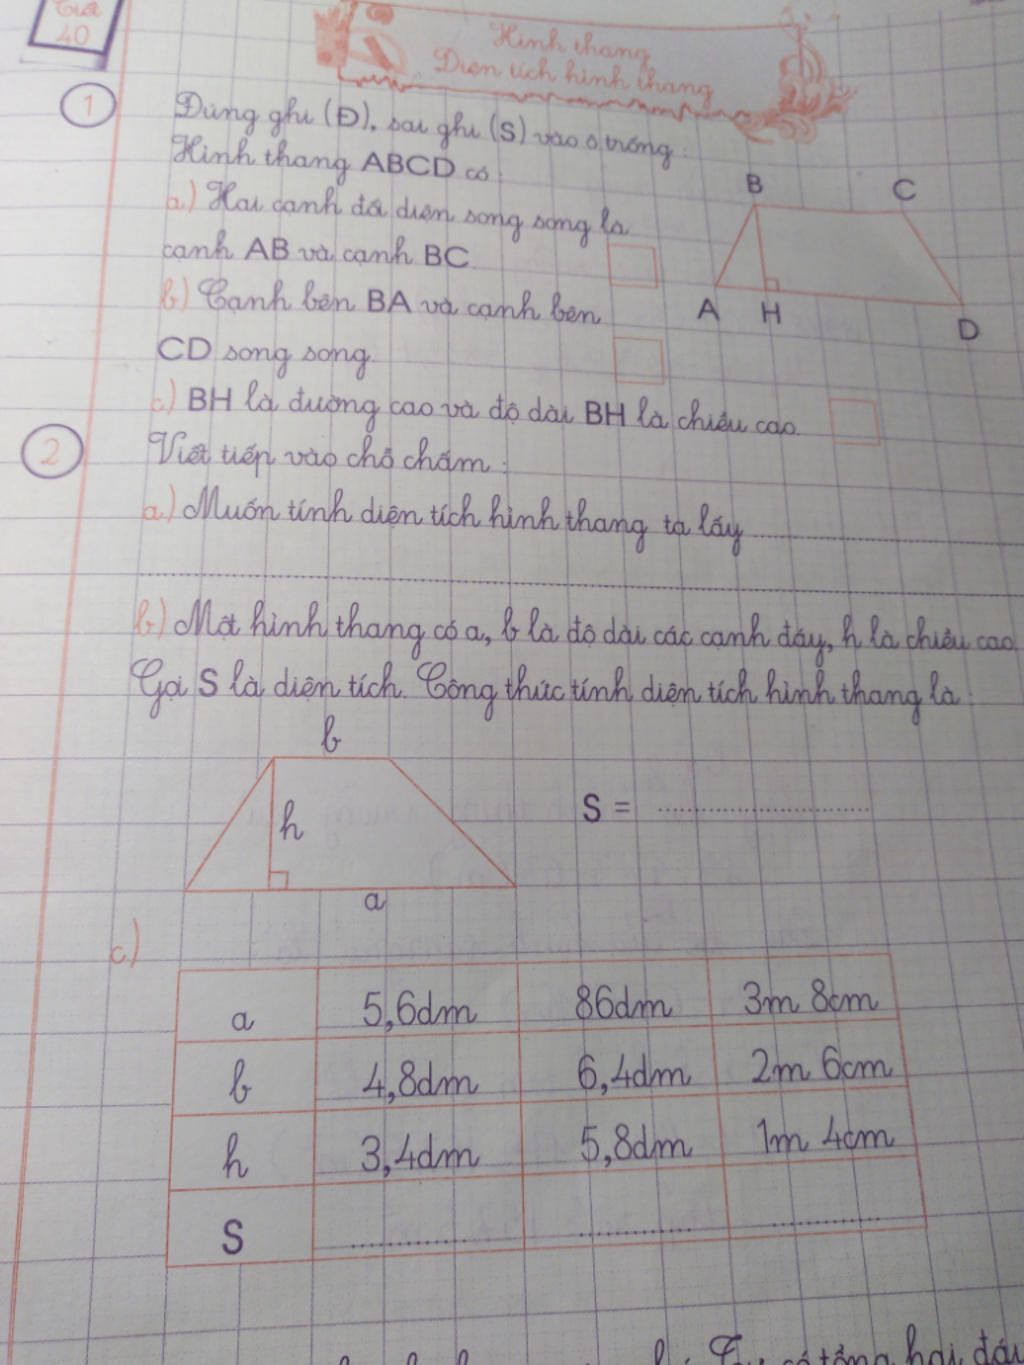 Tiết
40
Hình thang
Diện tích hình thang
1
Đúng ghi (Đ), sai ghi (S) vào ô trống:
Hình thang ABCD có:
a) Hai cạnh đối diện song song là
cạnh AB và cạnh BC
b) Cạnh bên BA và cạnh bên
CD song song.
c) BH là đường cao và độ dài BH là chiều cao.
B
C
A
H
D
2
Viết tiếp vào chỗ chấm:
a) Muốn tính diện tích hình thang ta lấy ..................
..................................................
b) Một hình thang có a, b là độ dài các cạnh đáy, h là chiều cao.
Gọi S là diện tích. Công thức tính diện tích hình thang là:
b
h
a
S = ..................
c)
a 5,6dm 86dm 3m 8cm
b 4,8dm 6,4dm 2m 6cm
h 3,4dm 5,8dm 1m 4cm
S .................. .................. ..................
có tổng hai đáy